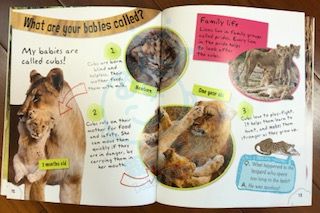 What are your babies called?
My babies
are called cubs!
1
Cubs are born
blind and
helpless. Their
mother feeds
them with milk.
Newborn
2
Cubs rely on their
mother for food
and safety. She
can move them
quickly if they
are in danger, by
carrying them in
her mouth.
2 months old
One year old
Family life
Lions live in family groups
called prides. Every lion
in the pride helps
to look after
the cubs.
3
Cubs love to play-fight.
It helps them learn to
hunt, and makes them
stronger as they grow up.
Q. What happened to the
leopard who spent
too long in the bath?
A. He was spotless!